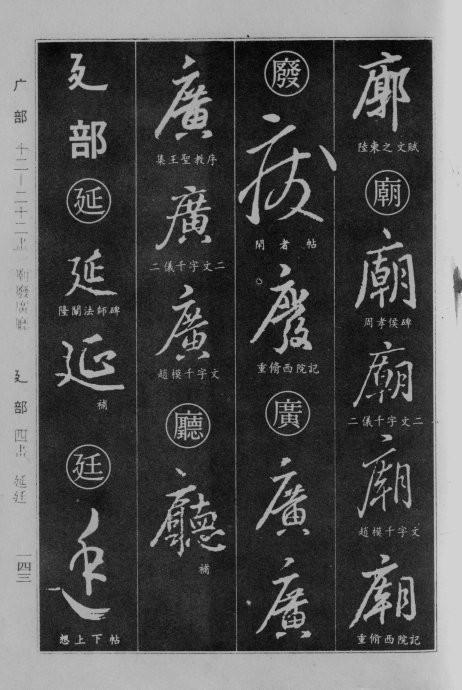 廓
陸柬之文賦
廟
廟
周孝侯碑
廟
二儀千字文二
廟
趙模千字文
廟
重脩西院記
廢
廢
閒者帖
廢
重脩西院記
廣
廣
廣
廣
集王聖教序
廣
二儀千字文二
廣
趙模千字文
廳
廳
補
廴部
延
延
隆闡法師碑
延
補
廷
廷
想上下帖
广部
十二—二十二畫
廴部
四畫
延廷
一四三